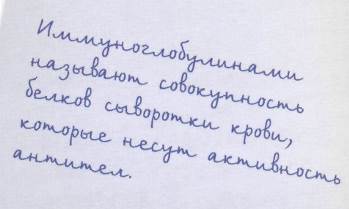 Иммуноглобулинами
называют совокупность
белков сыворотки крови,
которые несут активность
антител.